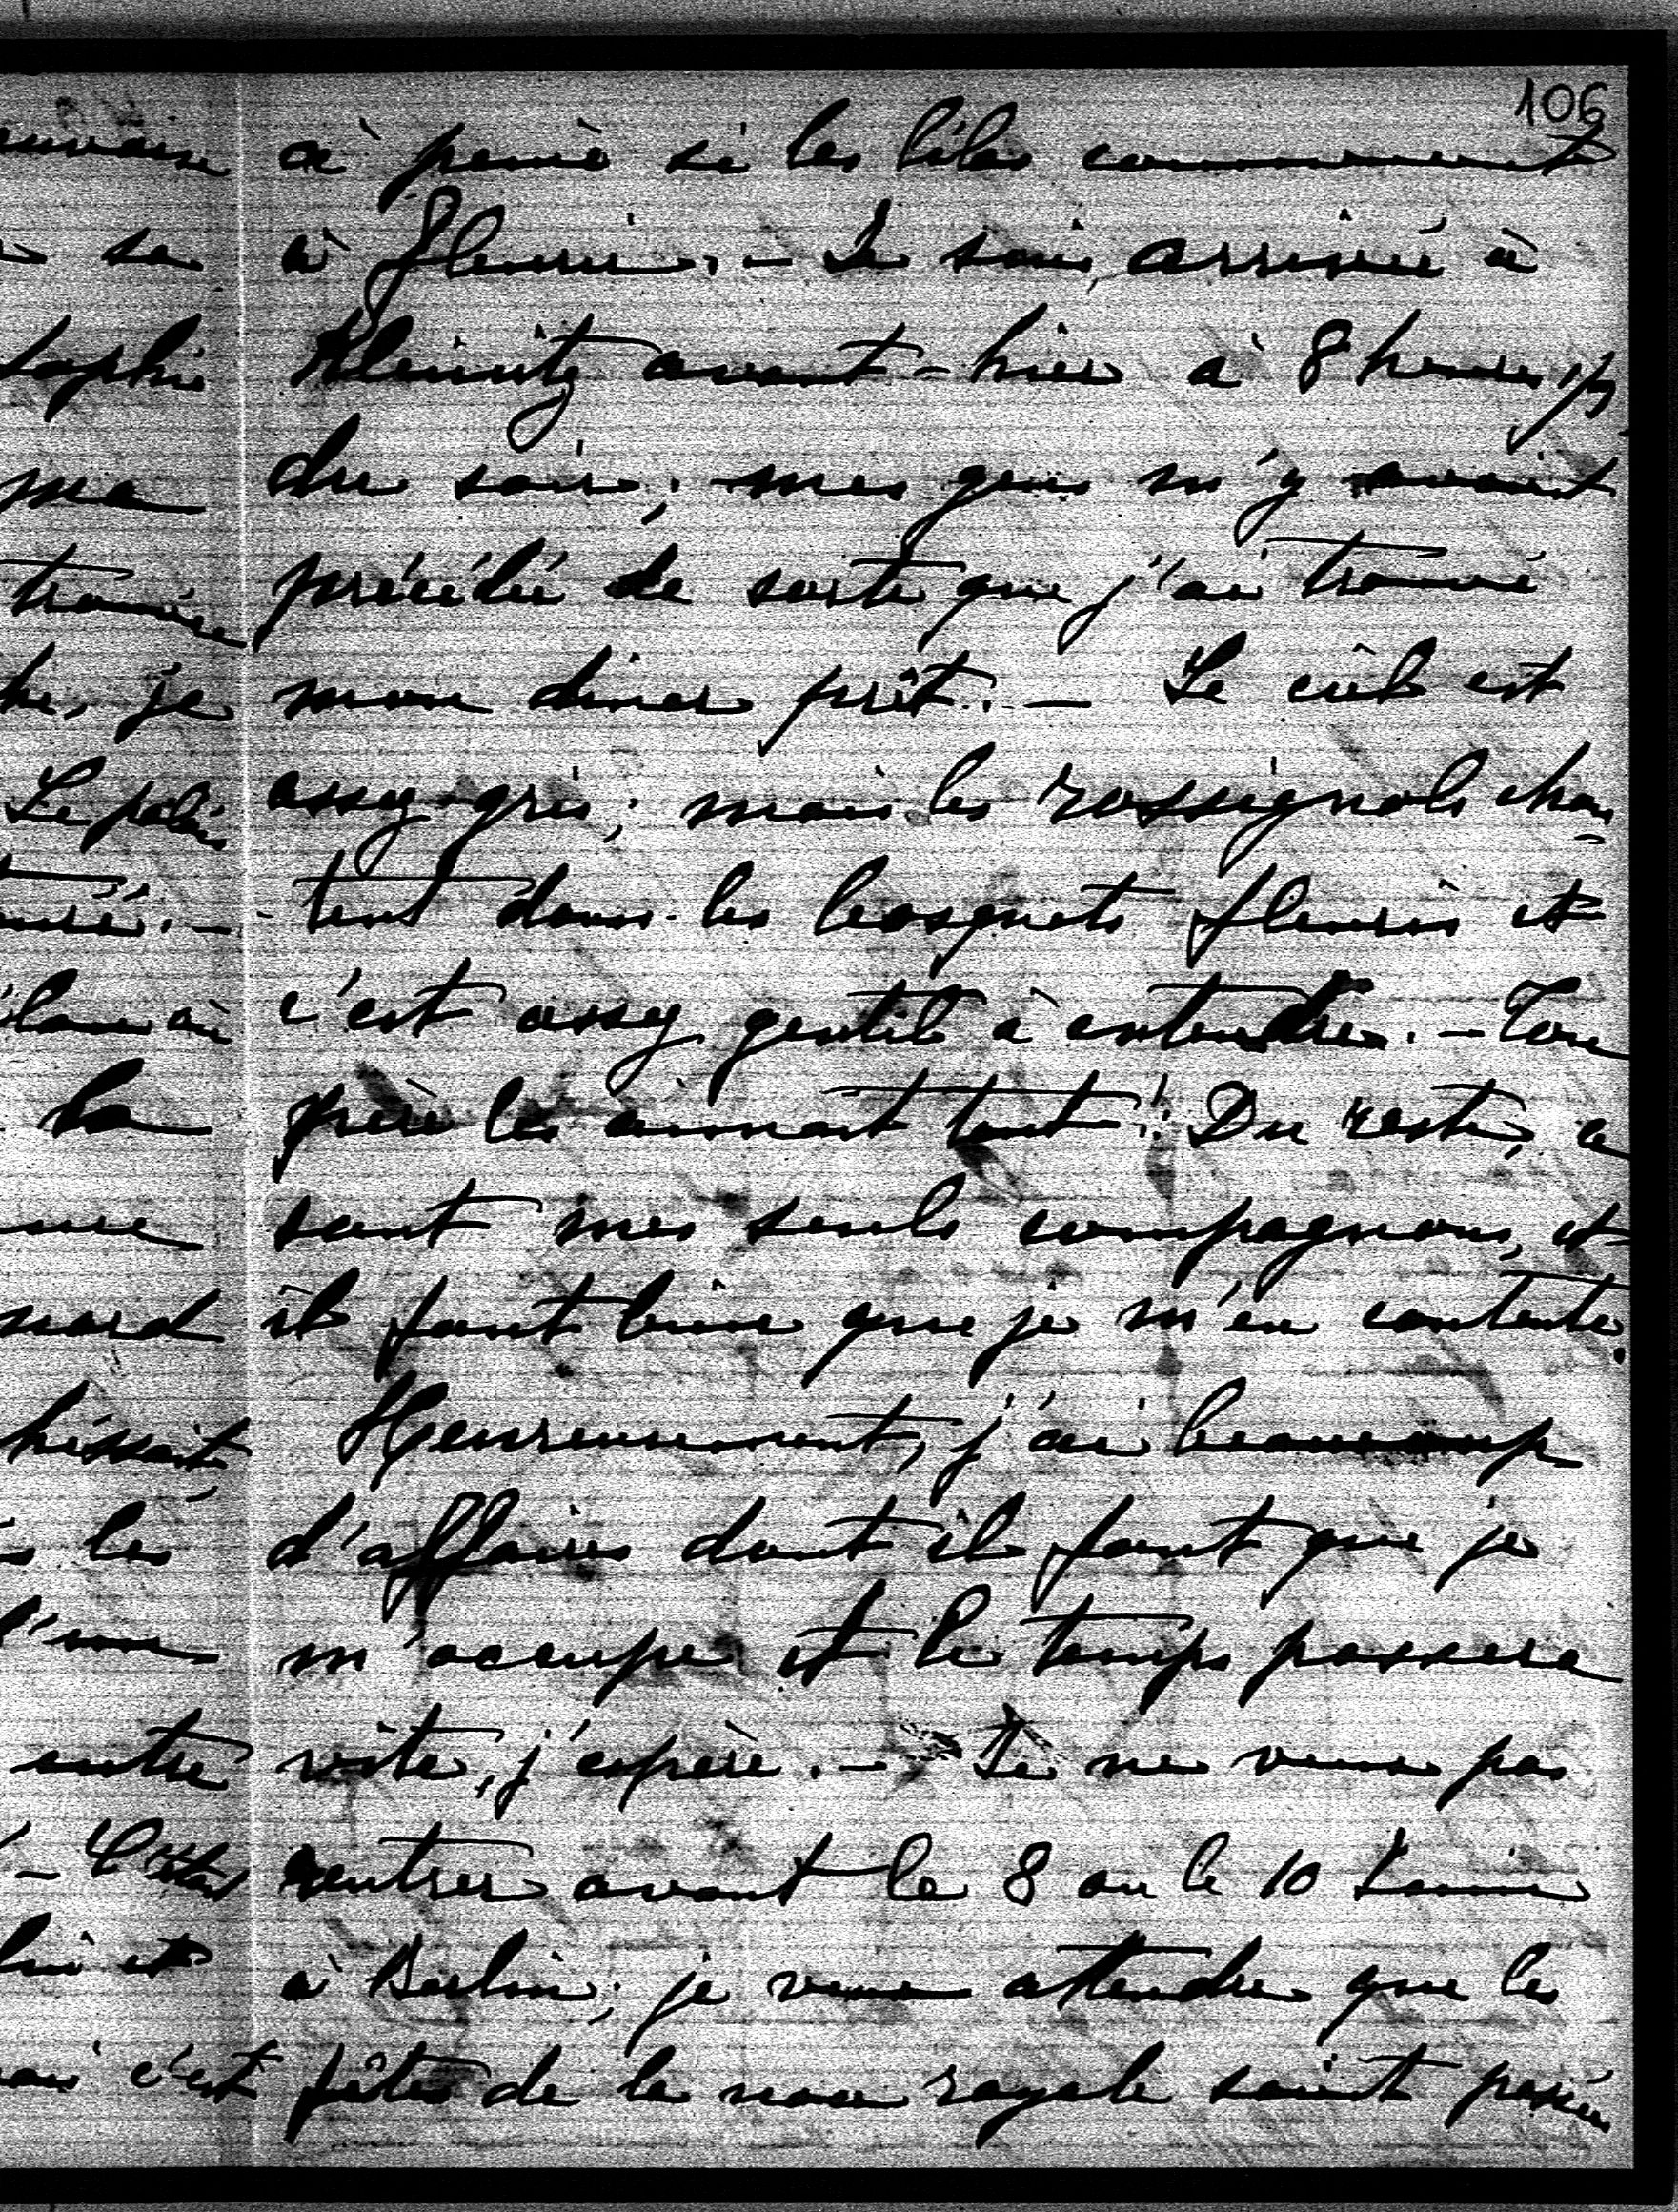 106
à peine si les lilas commencent
à fleurir. – Je suis arrivée à
Kleinitz avant-hier à 8 heures 1/2
du soir; mes gens m'y avaient
précédée de sorte que j'ai trouvé
mon diner prêt. – Le ciel est
assez gris; mais les rossignols chan=
-tent dans les bosquets fleuris et
c'est assez gentil à entendre. – Ton
père les aimait tant! Du reste, ce
sont mes seuls compagnons, et
il faut bien que je m'en contente.
Heureusement, j'ai beaucoup
d'affaires dont il faut que je
m'occupe et le temps passera
vite, j'espère. – Je ne veux pas
rentrer avant le 8 ou le 10 Juin
à Berlin; je veux attendre que les
fêtes de la noce royale soient passées
sa
sophie
ma
trouvée
je
Le palais
la
hissait
les
entre
et
c'est